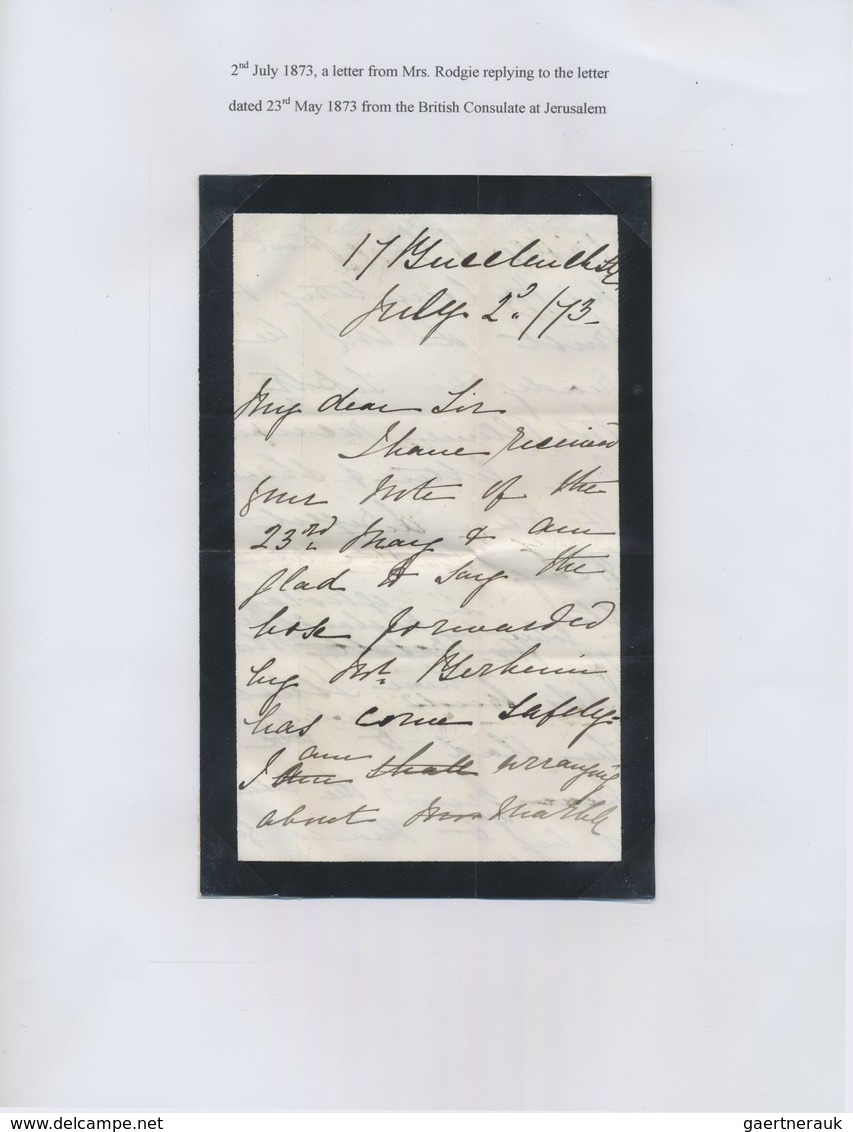 2nd July 1873, a letter from Mrs. Rodgie replying to the letter
dated 23rd May 1873 from the British Consulate at Jerusalem
17 Buccleuch
July 2d /73
My dear Sir
I have received
your note of the
23rd May & am
glad to say the
box forwarded
by Mr
has come safely.
I am shall arranging
about
gaertnerauk